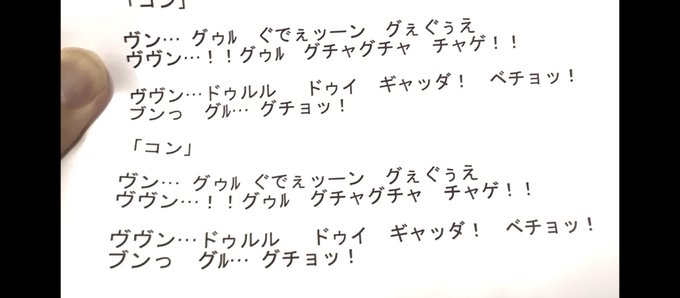 「コン」
ヴン… グゥﾙ ぐでぇッーン グぇぐぅえ
ヴヴン…！！グゥﾙ グチャグチャ チャゲ！！
ヴヴン…ドゥルル ドゥイ ギャッダ！ ベチョッ！
ブンっ グﾙ… グチョッ！
「コン」
ヴン… グゥﾙ ぐでぇッーン グぇぐぅえ
ヴヴン…！！グゥﾙ グチャグチャ チャゲ！！
ヴヴン…ドゥルル ドゥイ ギャッダ！ ベチョッ！
ブンっ グﾙ… グチョッ！